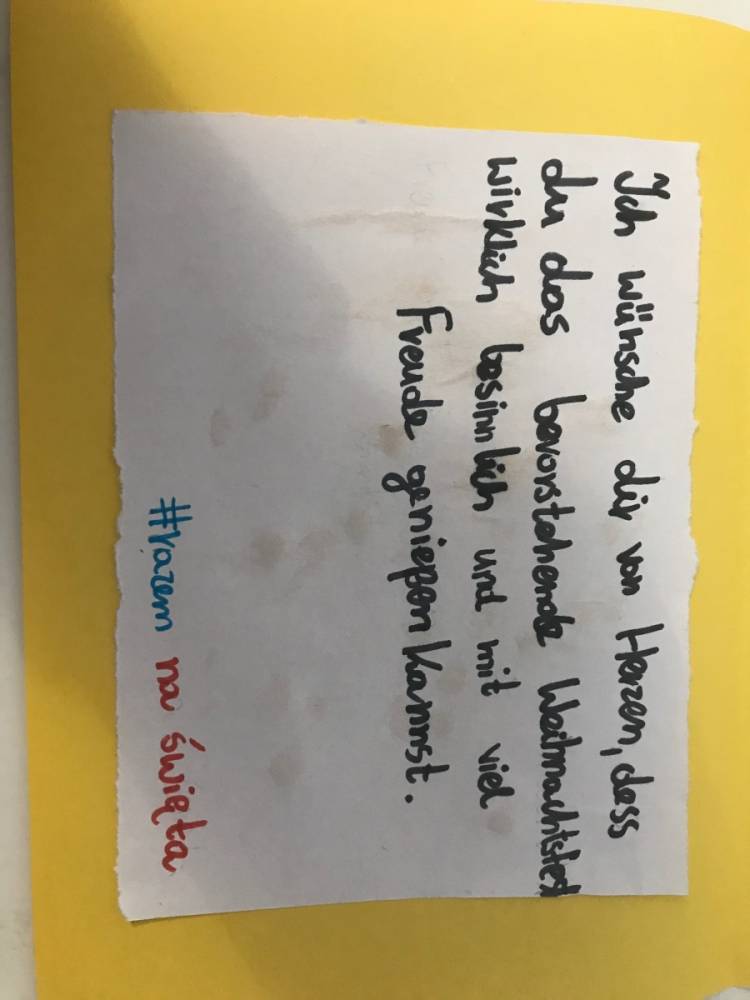 Ich wünsche dir von Herzen, dess
du das bevorstehende Weihnachtsfest
wirklich besinnlich und mit viel
Freude genießen kannst.
#razem na święta